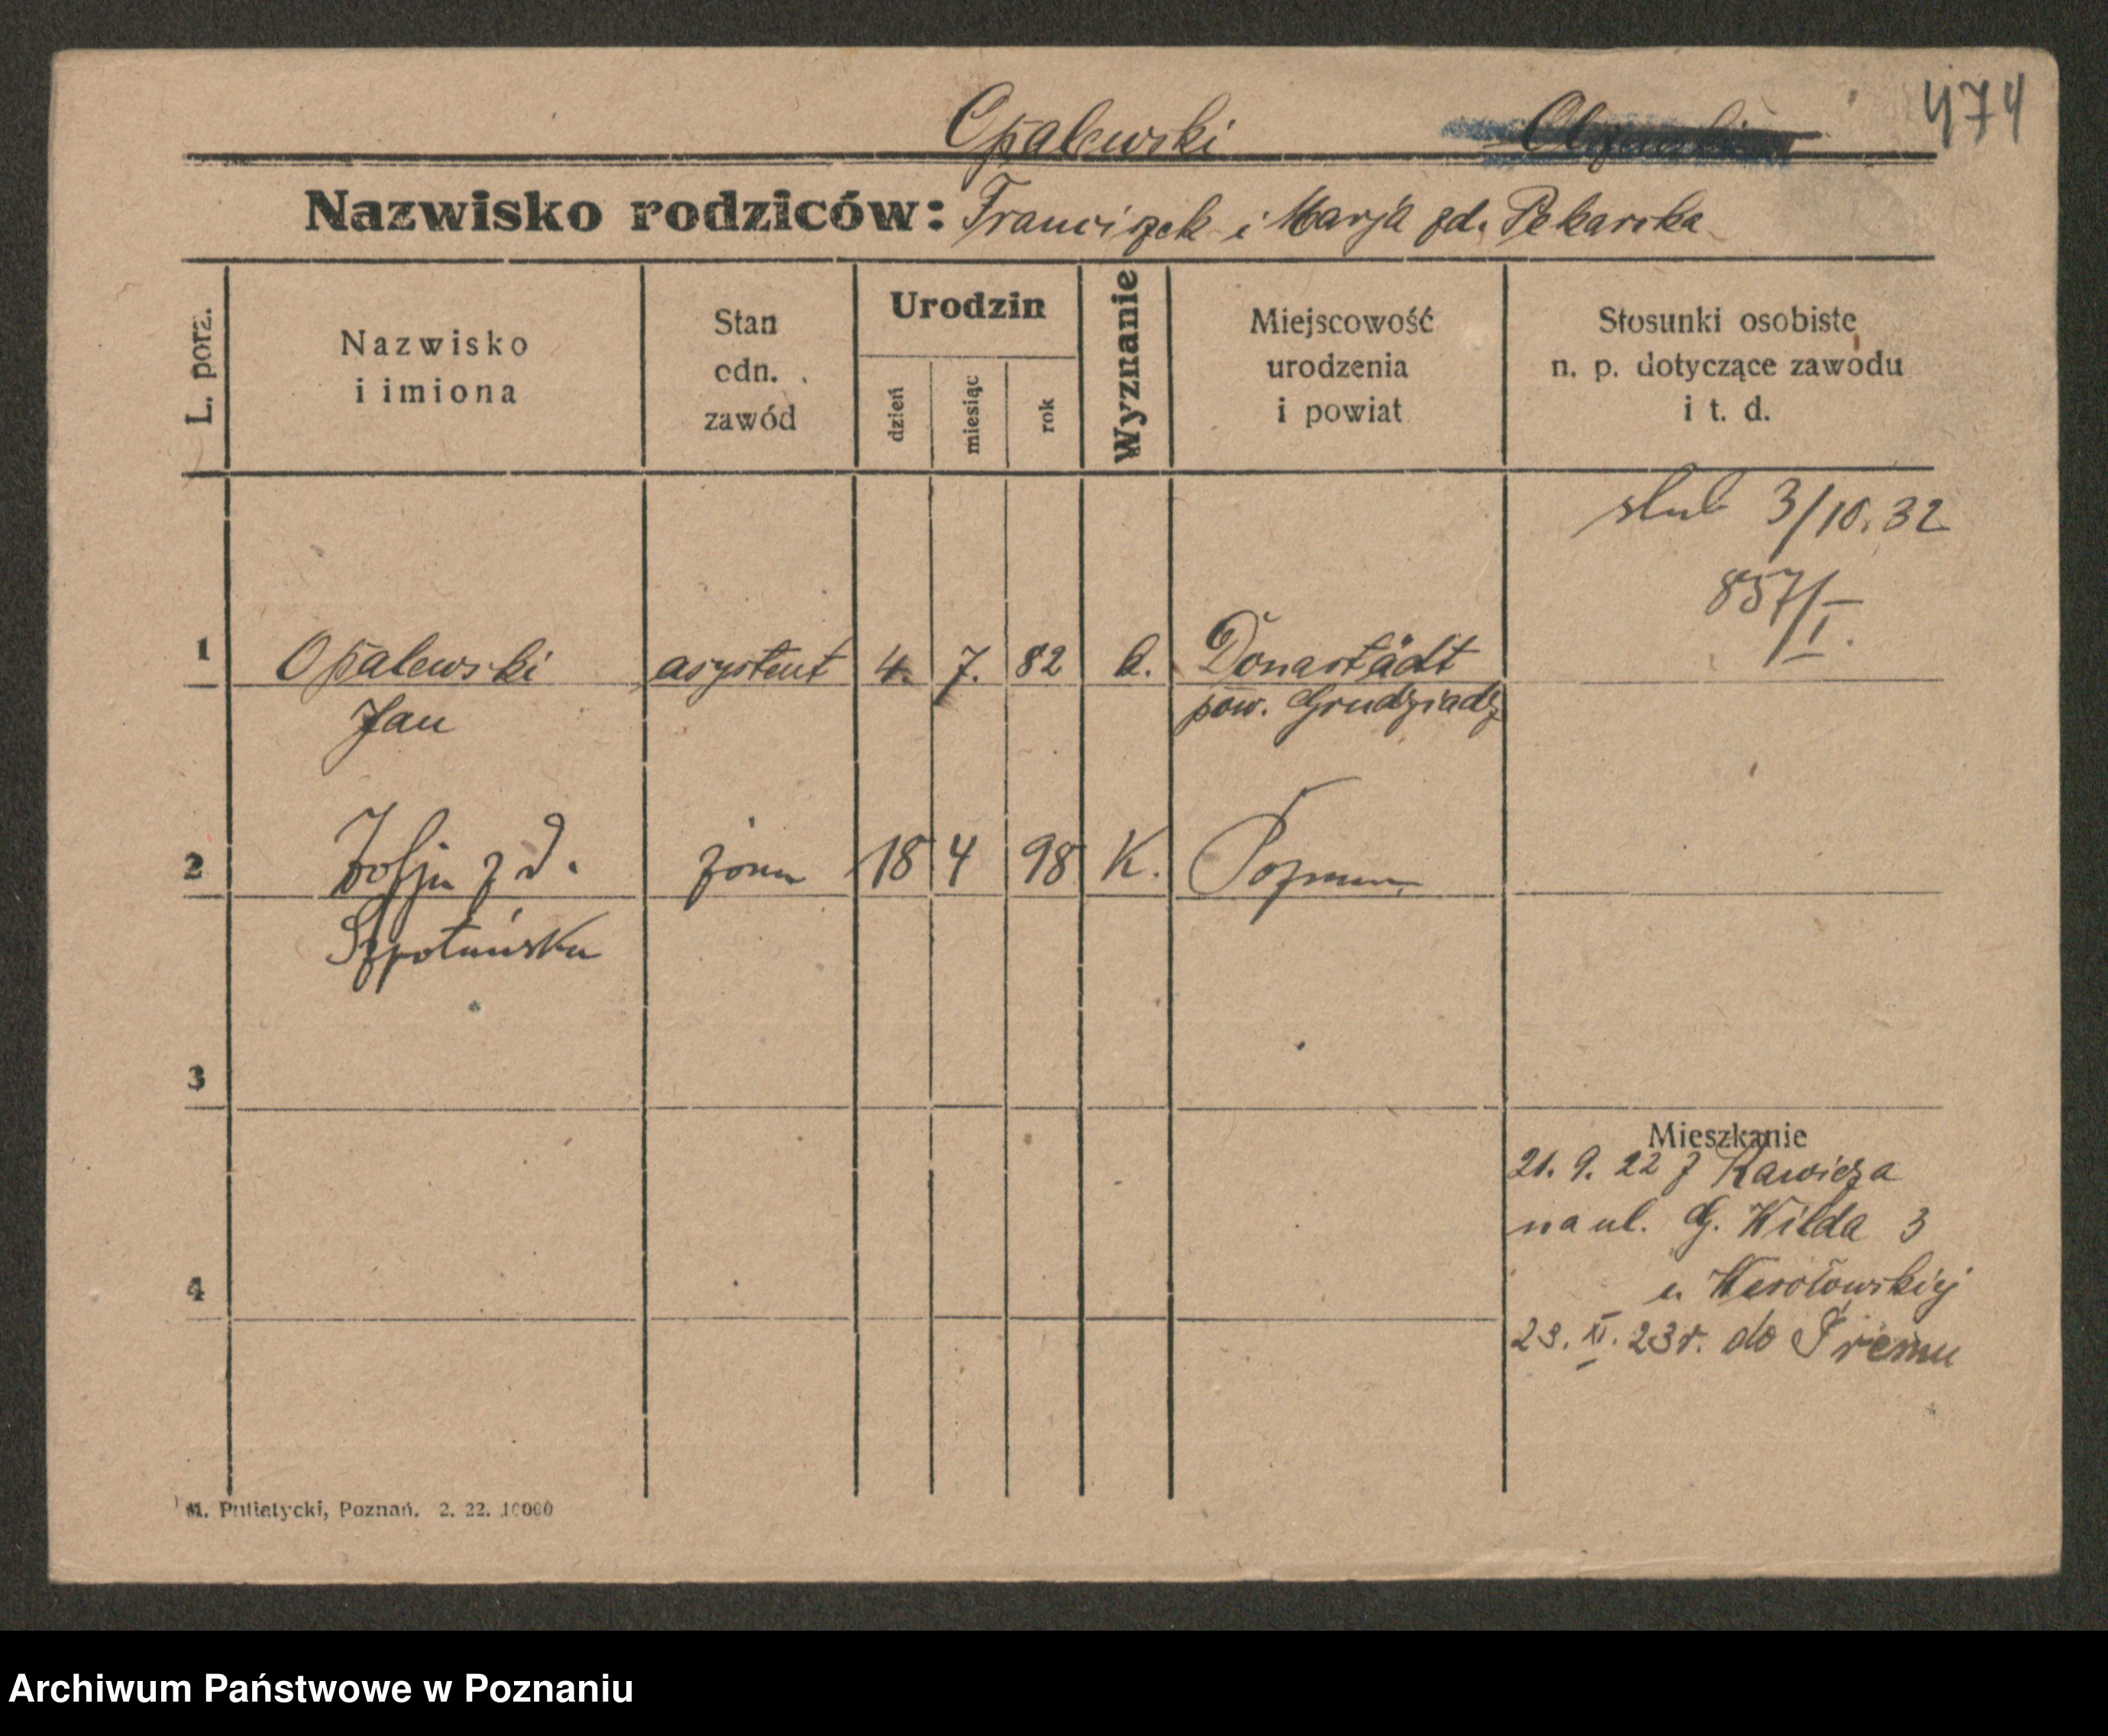 474
Opalewski
Nazwisko rodziców: Franciszek i Marja zd. Pekarska
L. porz.
Nazwisko
i imiona
Stan
odn.
zawód
Urodzin
dzień
miesiąc
rok
Wyznanie
Miejscowość
urodzenia
i powiat
Stosunki osobiste
n. p. dotyczące zawodu
i t. d.
ślub 3/10.32
857/I.
1 Opalewski asystent 4. 7. 82 k. Donastädt
Jan pow. Grudziądz
2 Zofja z d. żona 18 4 98 K. Poznań
Szpotańska
3
4
Mieszkanie
21. 9. 22 z Rawicza
na ul. G. Wilda 3
u Wesołowskiej
23. XI. 23 r. do Śremu
M. Putiatycki, Poznań. 2. 22. 10000
Archiwum Państwowe w Poznaniu